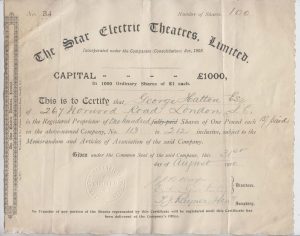 No. B4 Number of Shares 100
The Star Electric Theatres, Limited.
Incorporated under the Companies (Consolidation) Act, 1908.
CAPITAL £1000,
In 1000 Ordinary Shares of £1 each.
This is to Certify that George Hatton Esq
of 267 Norwood Road London S.E.
is the Registered Proprietor of One hundred fully paid Shares of One Pound each
in the above-named Company, No. 113 to 212 inclusive, subject to the
Memorandum and Articles of Association of the said Company.
Given under the Common Seal of the said Company, this
of August
Directors.
Secretary.
No Transfer of any portion of the Shares represented by this Certificate will be registered until this Certificate has
been delivered at the Company's Office.